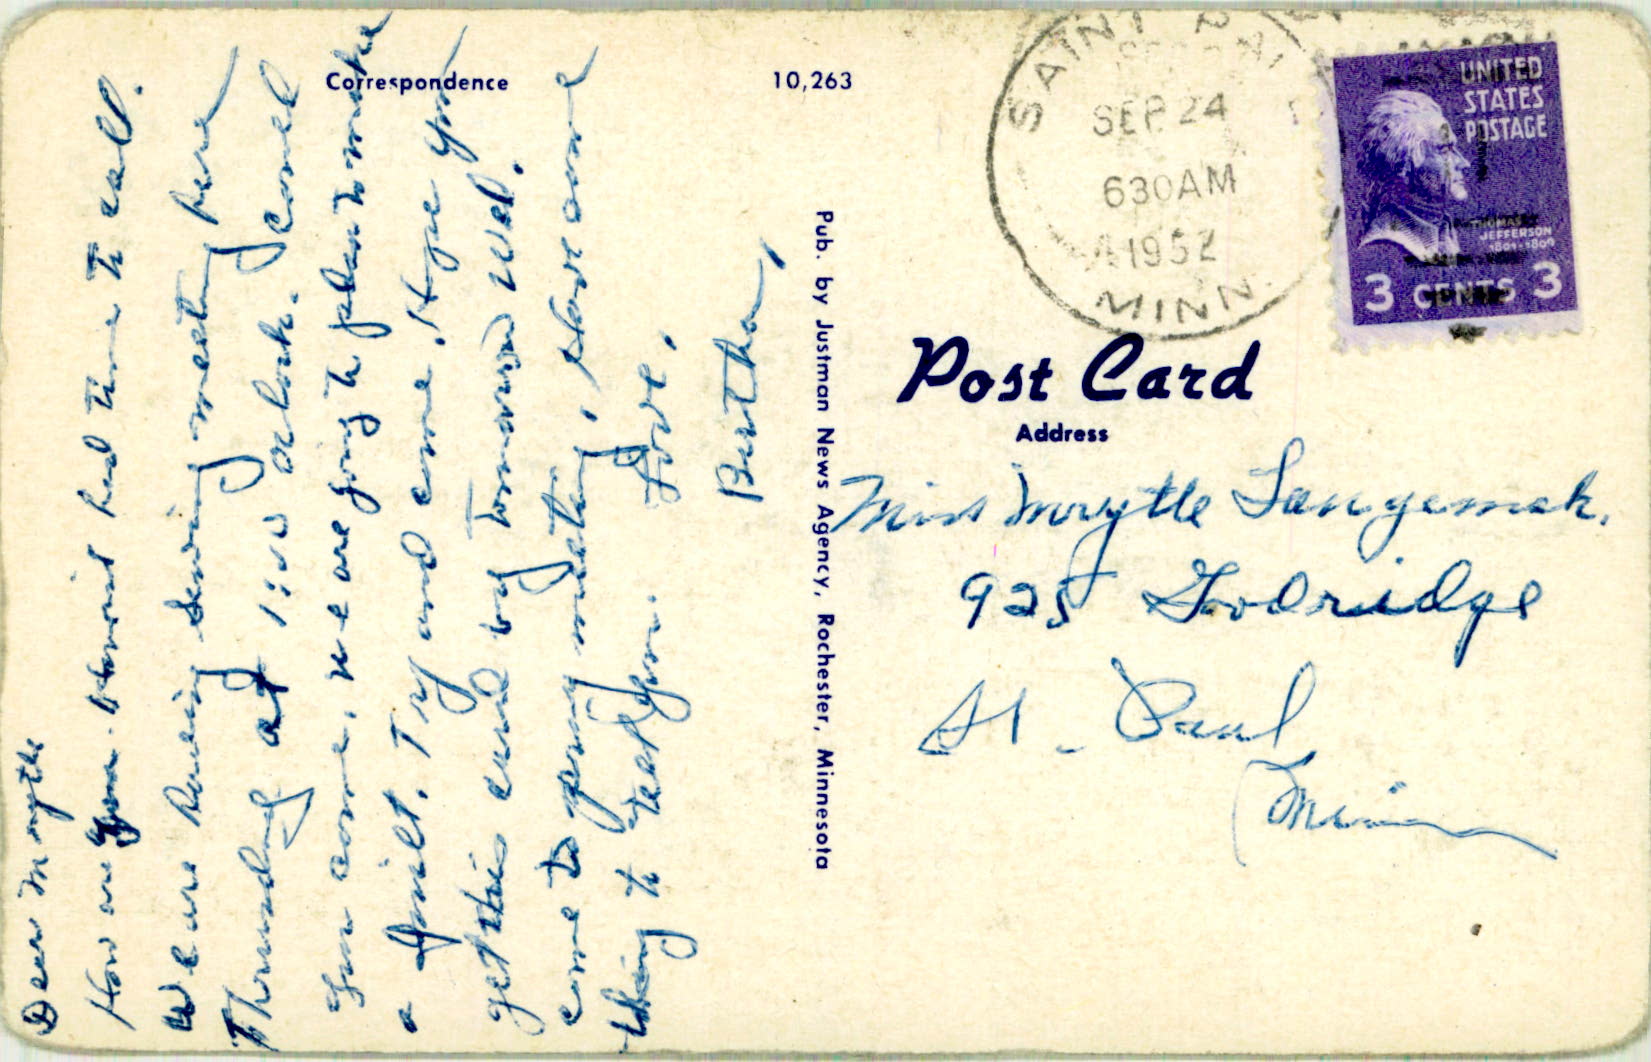 Correspondence
10,263
Dear Mrytle
How are you. Havent had time to call.
We are having Sewing meeting here
Thursday at 1:00 oclock. Could
you come, we are going to plan to make
a quilt. Try and come. Hope you
get this card by tomorrow Wed.
come to our meeting, have some
thing to tell you.
Love,
Bertha,
Pub. by Justman News Agency, Rochester, Minnesota
SAINT PAUL
SEP 24
630 AM
1952
MINN.
UNITED
STATES
POSTAGE
THOMAS
JEFFERSON
1801-1809
3 CENTS 3
Post Card
Address
Miss Mrytle Langemak.
925 Goodridge
St. Paul,
Minn